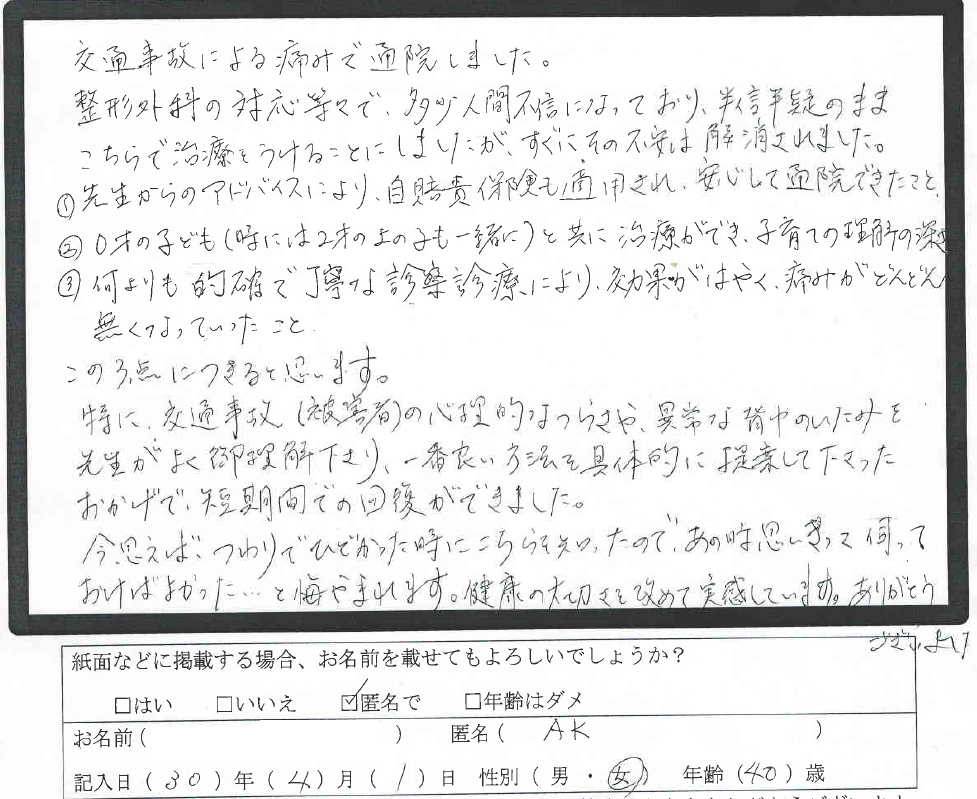 交通事故による痛みで通院しました。
整形外科の対応等々で、多少人間不信になっており、半信半疑のまま
こちらで治療をうけることにしましたが、すぐにその不安は解消されました。
①先生からのアドバイスにより、自賠責保険も適用され、安心して通院できたこと、
②0才の子ども(時には2才の上の子も一緒に)と共に治療ができ、子育ての理解の深さ
③何よりも的確で丁寧な診察診療により、効果がはやく、痛みがどんどん
無くなっていったこと、
この3点につきると思います。
特に、交通事故(被害者)の心理的なつらさや、異常な背中のいたみを
先生がよく御理解下さり、一番良い方法を具体的に提案して下さった
おかげで、短期間での回復ができました。
今思えば、つわりでひどかった時にこちらを知ったので、あの時思いきって伺って
おけばよかった…と悔やまれます。健康の大切さを改めて実感しています。ありがとう
ございました
紙面などに掲載する場合、お名前を載せてもよろしいでしょうか?
□はい □いいえ ☑匿名で □年齢はダメ
お名前( ) 匿名( AK )
記入日(30)年(4)月(1)日 性別(男・女) 年齢(40)歳